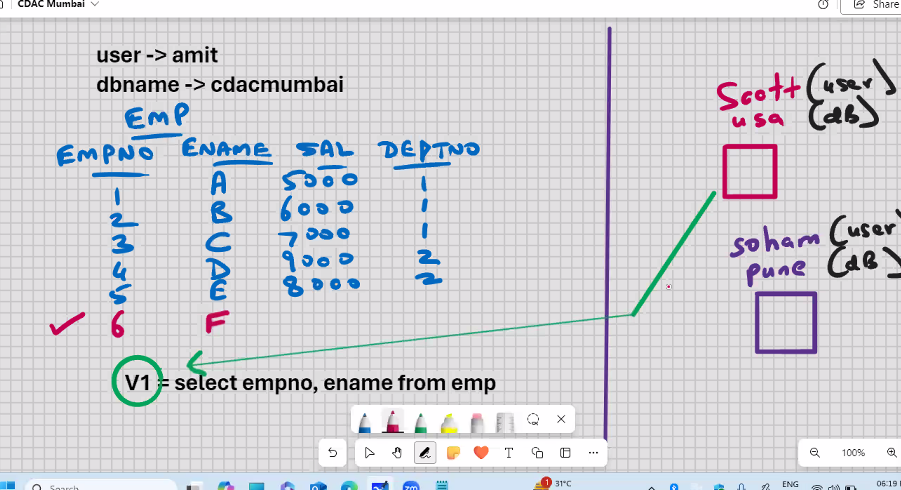 CDAC Mumbai
Share
user -> amit
dbname -> cdacmumbai
EMP
EMPNO ENAME SAL DEPTNO
1 A 5000 1
2 B 6000 1
3 C 7000 1
4 D 9000 2
5 E 8000 2
6 F
V1 = select empno, ename from emp
Scott (user)
usa (dB)
soham (user
pune (dB)
100%
Search
1
31°C
ENG
06:19